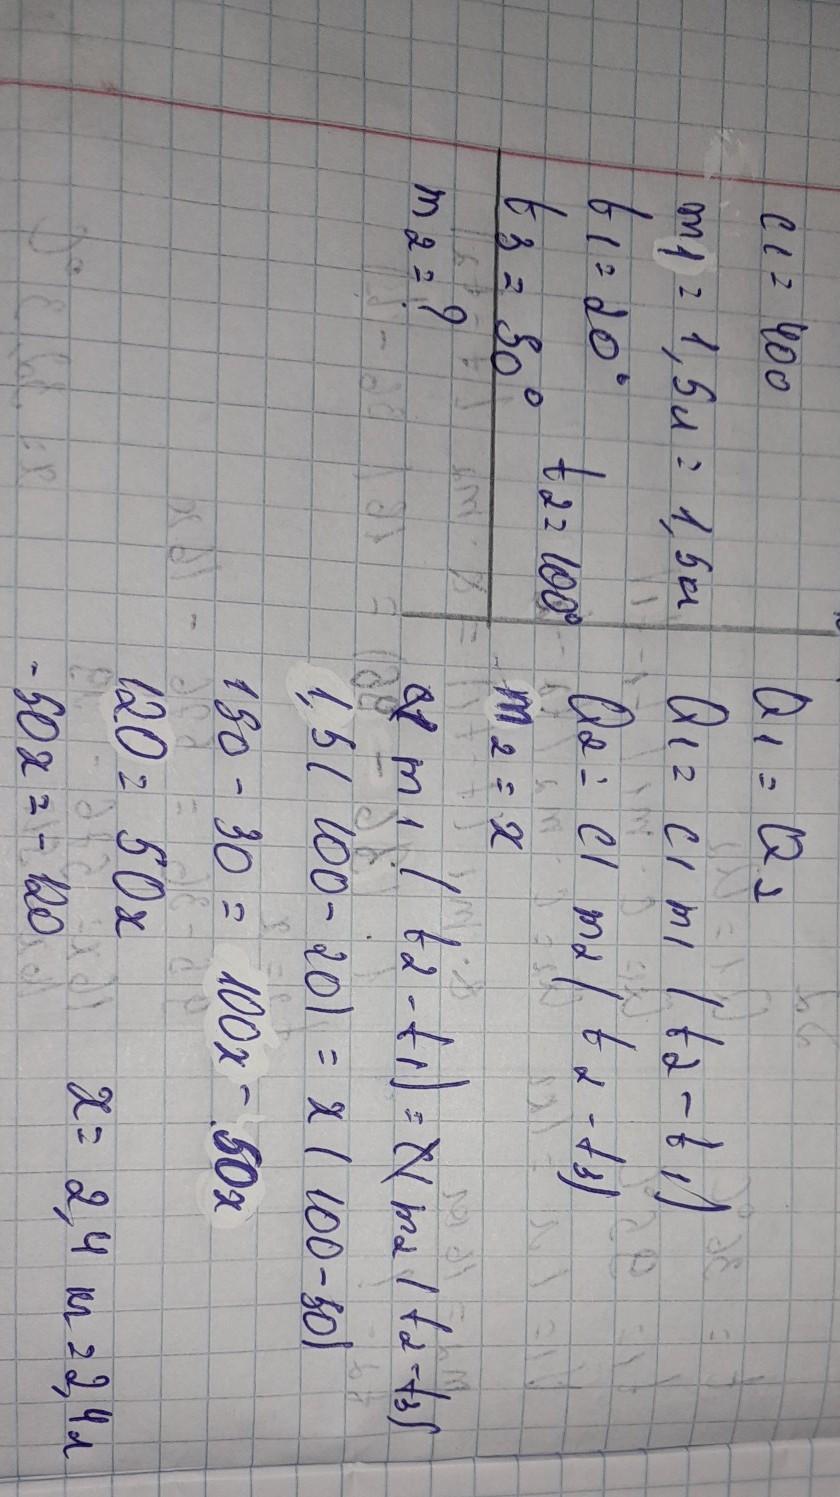 c1 = 400
m1 = 1,5л = 1,5кг
t1 = 20°
t2 = 100°
t3 = 50°
m2 = ?
Q1 = Q2
Q1 = c1 m1 (t2 - t1)
Q2 = c1 m2 (t2 - t3)
m2 = x
c1 m1 (t2 - t1) = c1 m2 (t2 - t3)
1,5 (100 - 20) = x (100 - 50)
150 - 30 = 100x - 50x
120 = 50x
-50x = -120
x = 2,4 кг = 2,4л